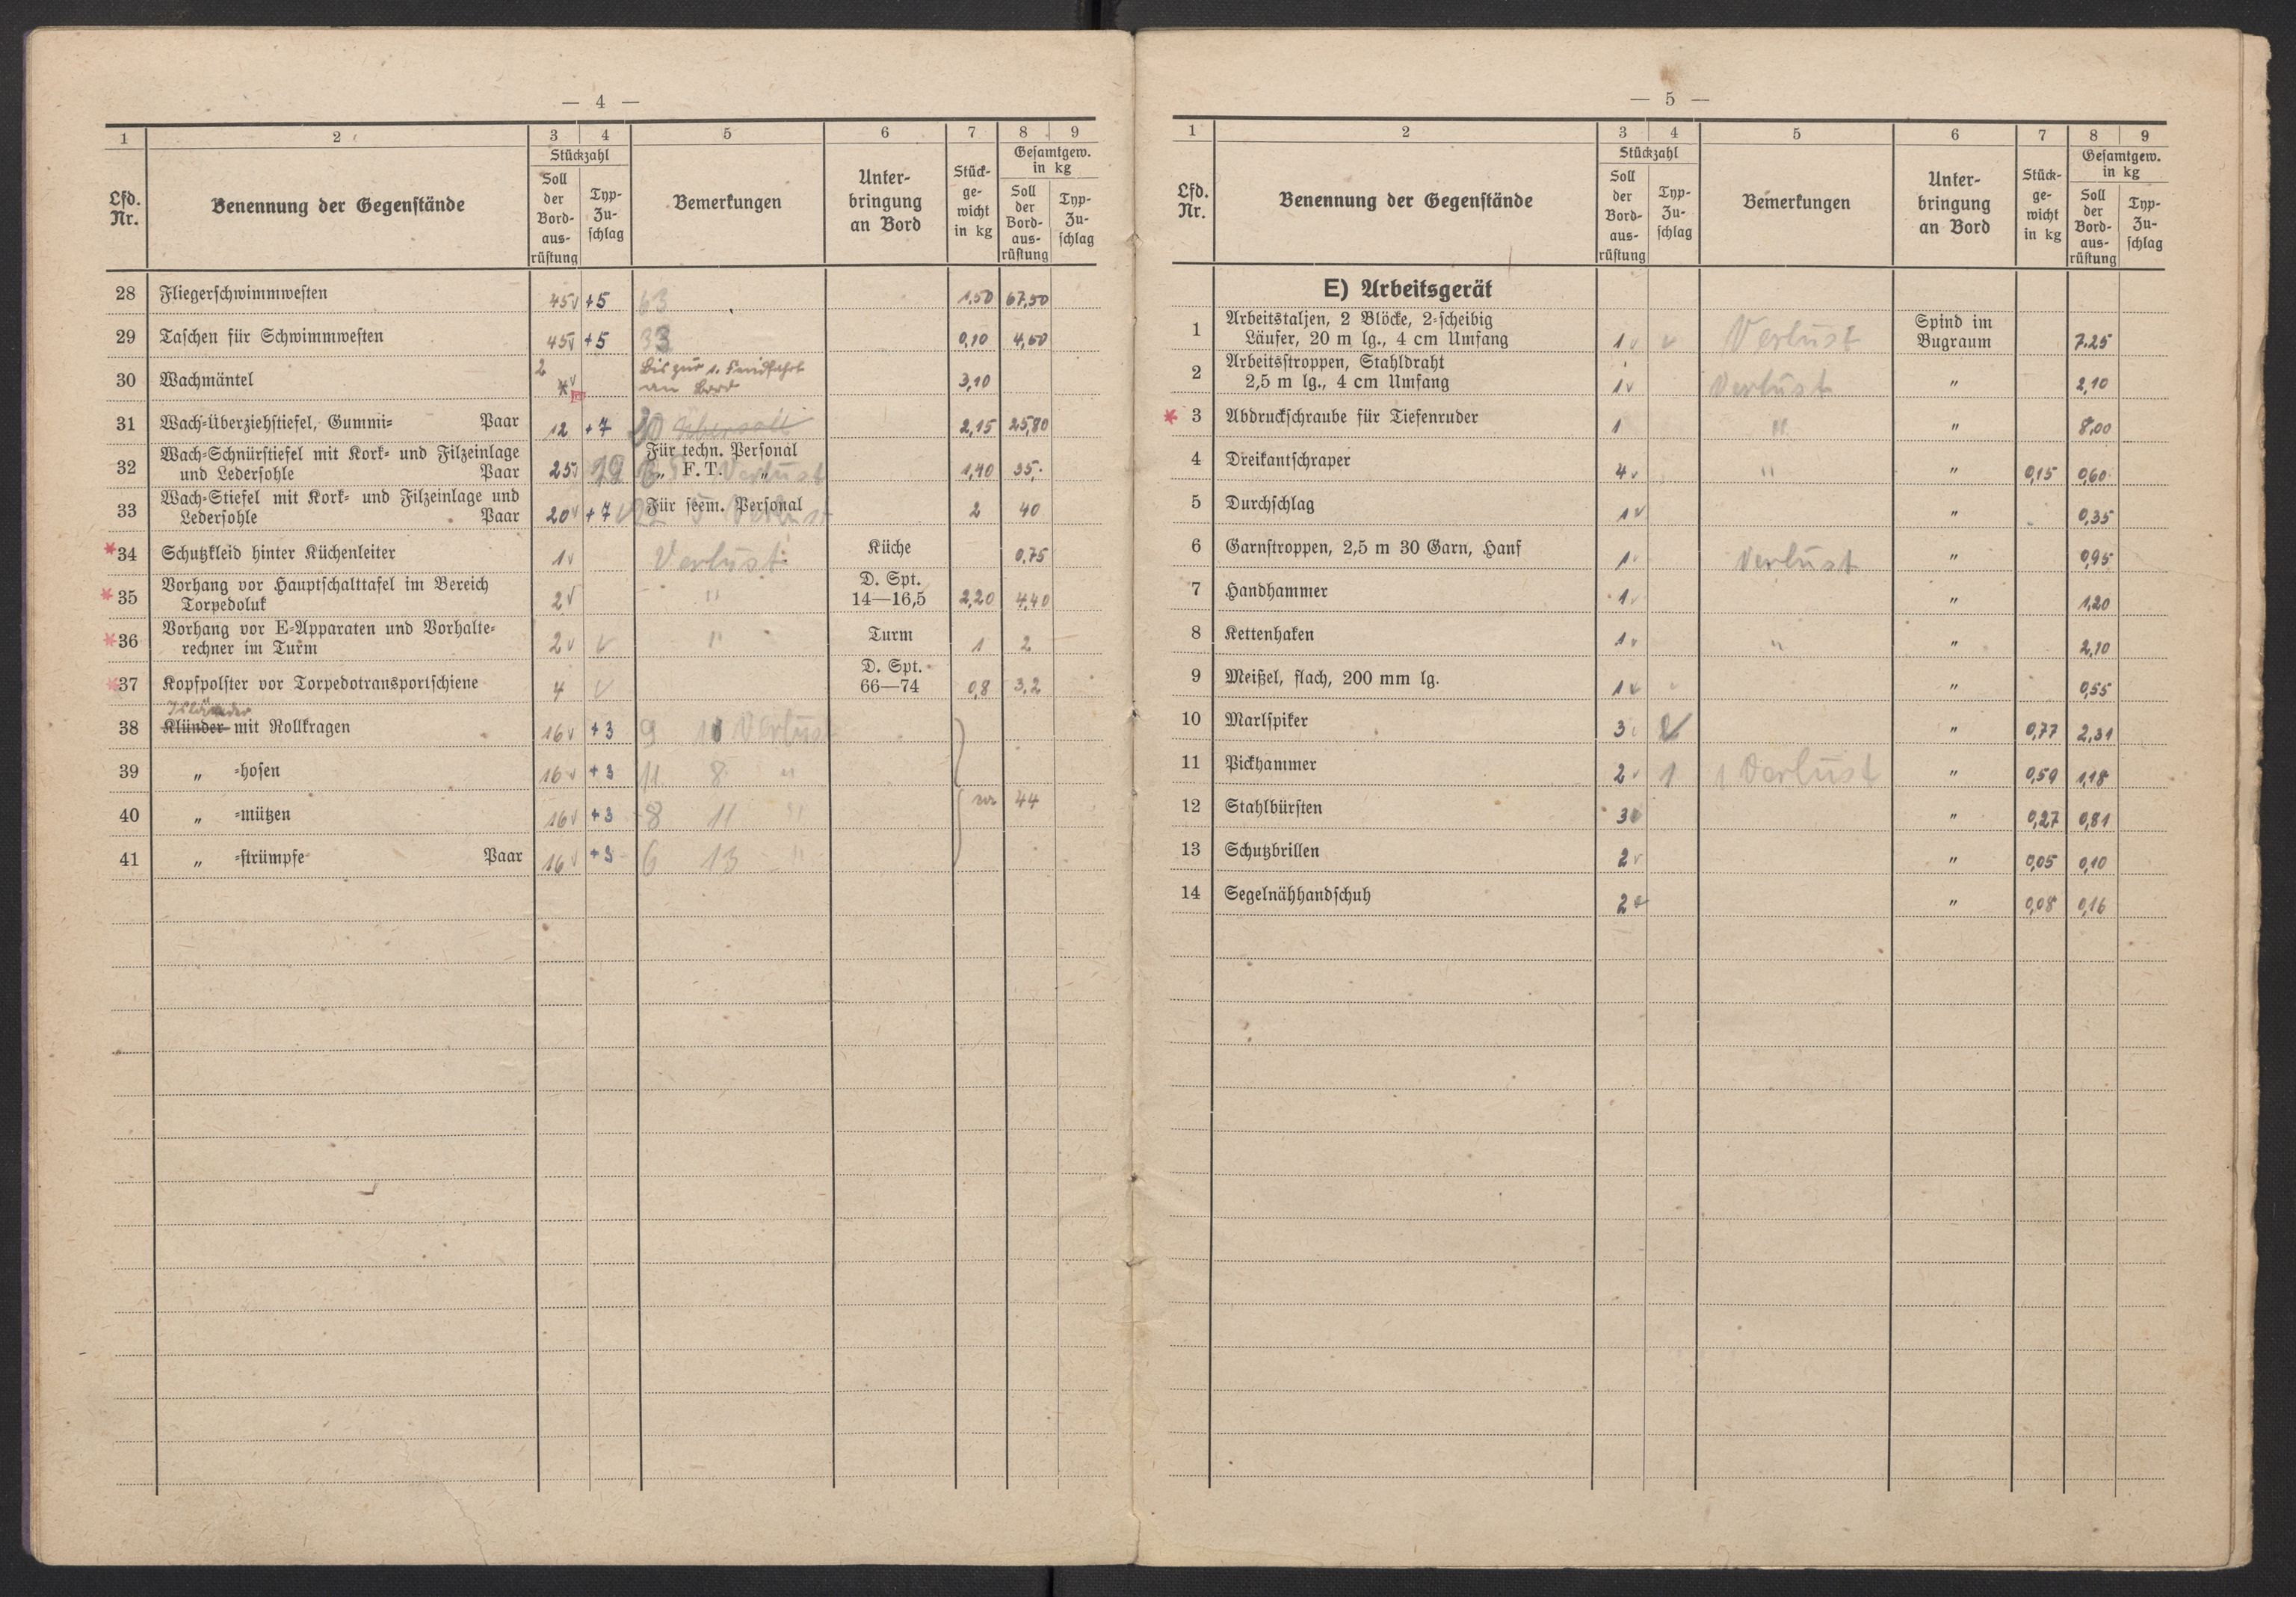 — 4 —
1 2 3 4 5 6 7 8 9
Lfd. Nr. Benennung der Gegenstände Stückzahl Soll der Bord-aus-rüstung Typ-Zu-schlag Bemerkungen Unter-bringung an Bord Stück-ge-wicht in kg Gesamtgew. in kg Soll der Bord-aus-rüstung Typ-Zu-schlag
28 Fliegerschwimmwesten 45 +5 63 1,50 67,50
29 Taschen für Schwimmwesten 45 +5 33 0,10 4,50
30 Wachmäntel 2 Bis zur 1. Feindfahrt 3,10
an Bord
31 Wach-Überziehstiefel, Gummi- Paar 12 +7 20 2,15 25,80
32 Wach-Schnürstiefel mit Kork- und Filzeinlage Für techn. Personal
und Ledersohle Paar 25 19 „ F. T. „ Verlust 1,40 35,-
33 Wach-Stiefel mit Kork- und Filzeinlage und
Ledersohle Paar 20 +7 Für seem. Personal Verlust 2 40
*34 Schutzkleid hinter Küchenleiter 1 Verlust Küche 0,75
*35 Vorhang vor Hauptschalttafel im Bereich D. Spt.
Torpedoluk 2 " 14—16,5 2,20 4,40
*36 Vorhang vor E-Apparaten und Vorhalte-
rechner im Turm 2 " Turm 1 2
*37 Kopfpolster vor Torpedotransportschiene 4 D. Spt. 66—74 0,8 3,2
Isländer
38 Klünder mit Rollkragen 16 +3 9 10 Verlust
39 „ -hosen 16 +3 11 8 "
40 „ -mützen 16 +3 8 11 " 44
41 „ -strümpfe Paar 16 +3 6 13 "
— 5 —
1 2 3 4 5 6 7 8 9
Lfd. Nr. Benennung der Gegenstände Stückzahl Soll der Bord-aus-rüstung Typ-Zu-schlag Bemerkungen Unter-bringung an Bord Stück-ge-wicht in kg Gesamtgew. in kg Soll der Bord-aus-rüstung Typ-Zu-schlag
E) Arbeitsgerät
1 Arbeitstaljen, 2 Blöcke, 2-scheibig Spind im
Läufer, 20 m lg., 4 cm Umfang 1 Verlust Bugraum 7,25
2 Arbeitsstroppen, Stahldraht
2,5 m lg., 4 cm Umfang 1 Verlust „ 2,10
*3 Abdruckschraube für Tiefenruder 1 " „ 8,00
4 Dreikantschraper 4 " „ 0,15 0,60
5 Durchschlag 1 „ 0,35
6 Garnstroppen, 2,5 m 30 Garn, Hanf 1 Verlust „ 0,95
7 Handhammer 1 „ 1,20
8 Kettenhaken 1 " „ 2,10
9 Meißel, flach, 200 mm lg. 1 „ 0,55
10 Marlspiker 3 „ 0,77 2,31
11 Pickhammer 2 1 1 Verlust „ 0,59 1,18
12 Stahlbürsten 3 „ 0,27 0,81
13 Schutzbrillen 2 „ 0,05 0,10
14 Segelnähhandschuh 2 „ 0,08 0,16